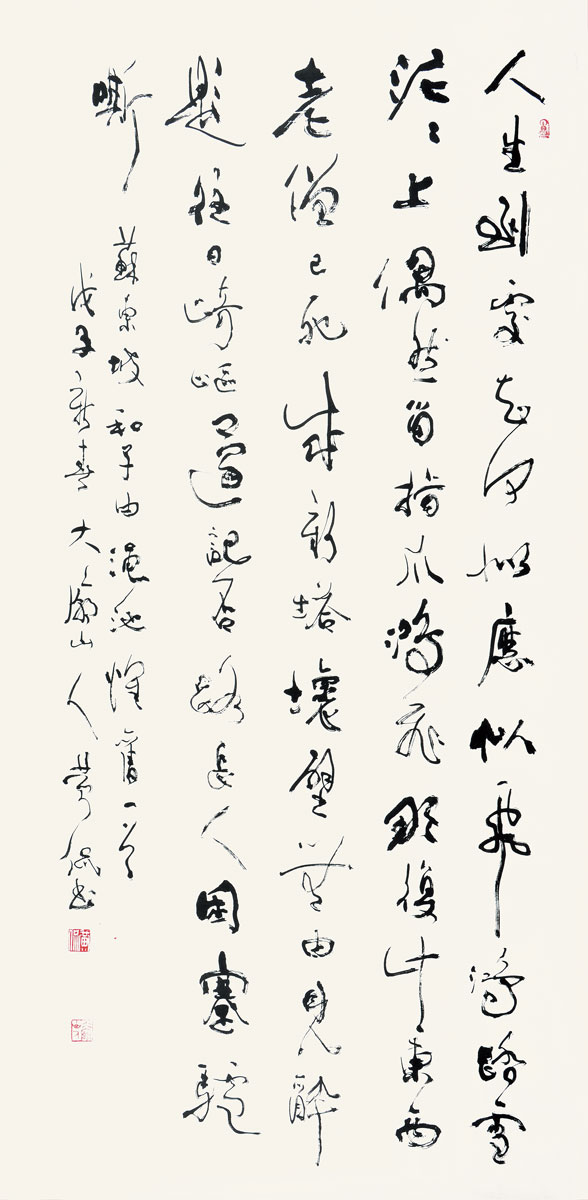 人生到處知何似應似飛鴻踏雪
泥々上偶然留指爪鴻飛那復計東西
老僧已死成新塔壞壁無由見舊
題往日崎嶇還記否路長人困蹇驢
嘶
蘇東坡和子由澠池懷舊一首
戊子新春大山人書